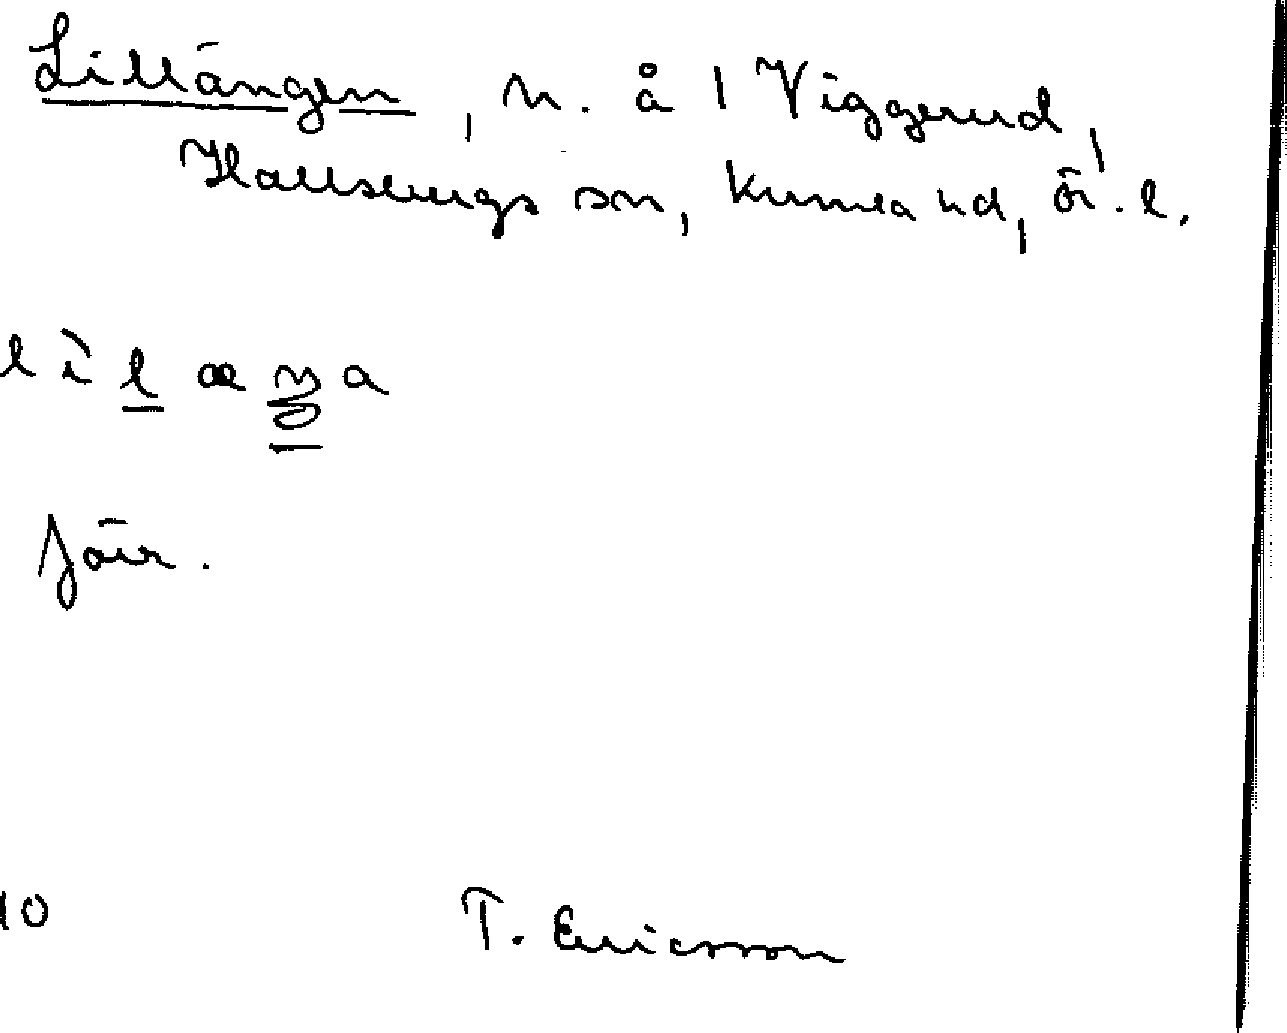 Lillängen, n. å 1 Viggerud,
Hallsbergs sn, Kumla hd, ör. l.
lìlæŋa
T. Ericsson